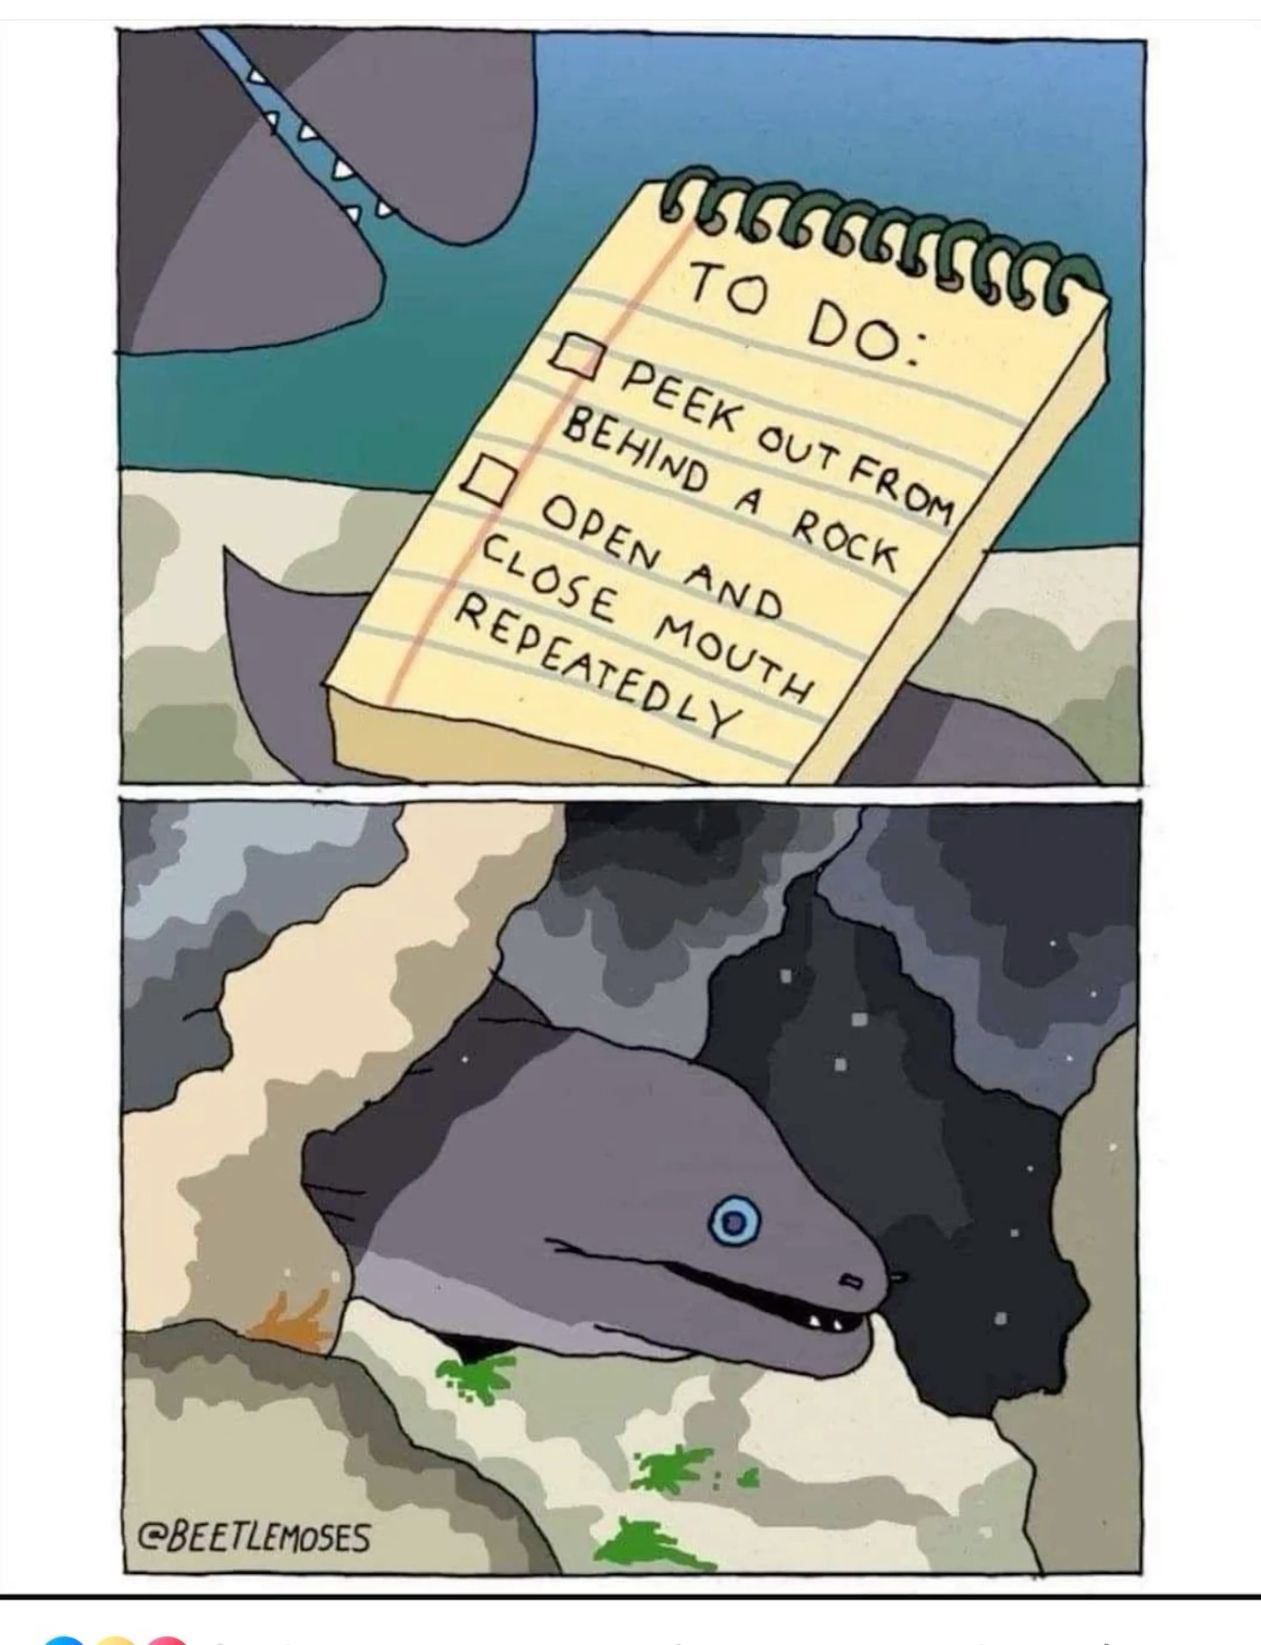 TO DO:
PEEK OUT FROM
BEHIND A ROCK
OPEN AND
CLOSE MOUTH
REPEATEDLY
@BEETLEMOSES